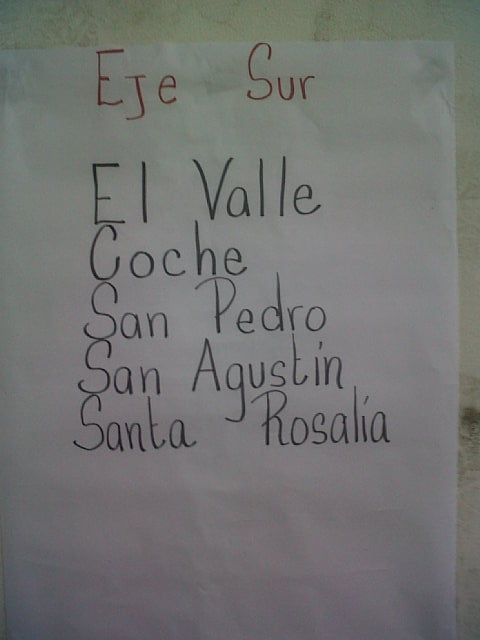 Eje Sur
El Valle
Coche
San Pedro
San Agustín
Santa Rosalía